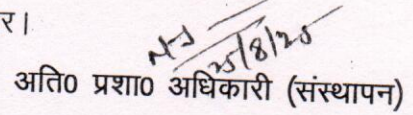 र।
25/8/25
अति0 प्रशा0 अधिकारी (संस्थापन)